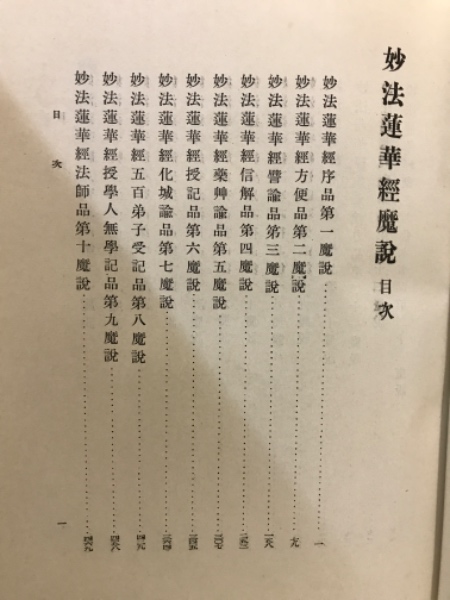 妙法蓮華經魔說 目次
妙法蓮華經序品第一魔說……一
妙法蓮華經方便品第二魔說……九
妙法蓮華經譬諭品第三魔說
妙法蓮華經信解品第四魔說
妙法蓮華經藥艸諭品第五魔說
妙法蓮華經授記品第六魔說
妙法蓮華經化城諭品第七魔說
妙法蓮華經五百弟子受記品第八魔說
妙法蓮華經授學人無學記品第九魔說
妙法蓮華經法師品第十魔說
目次
一